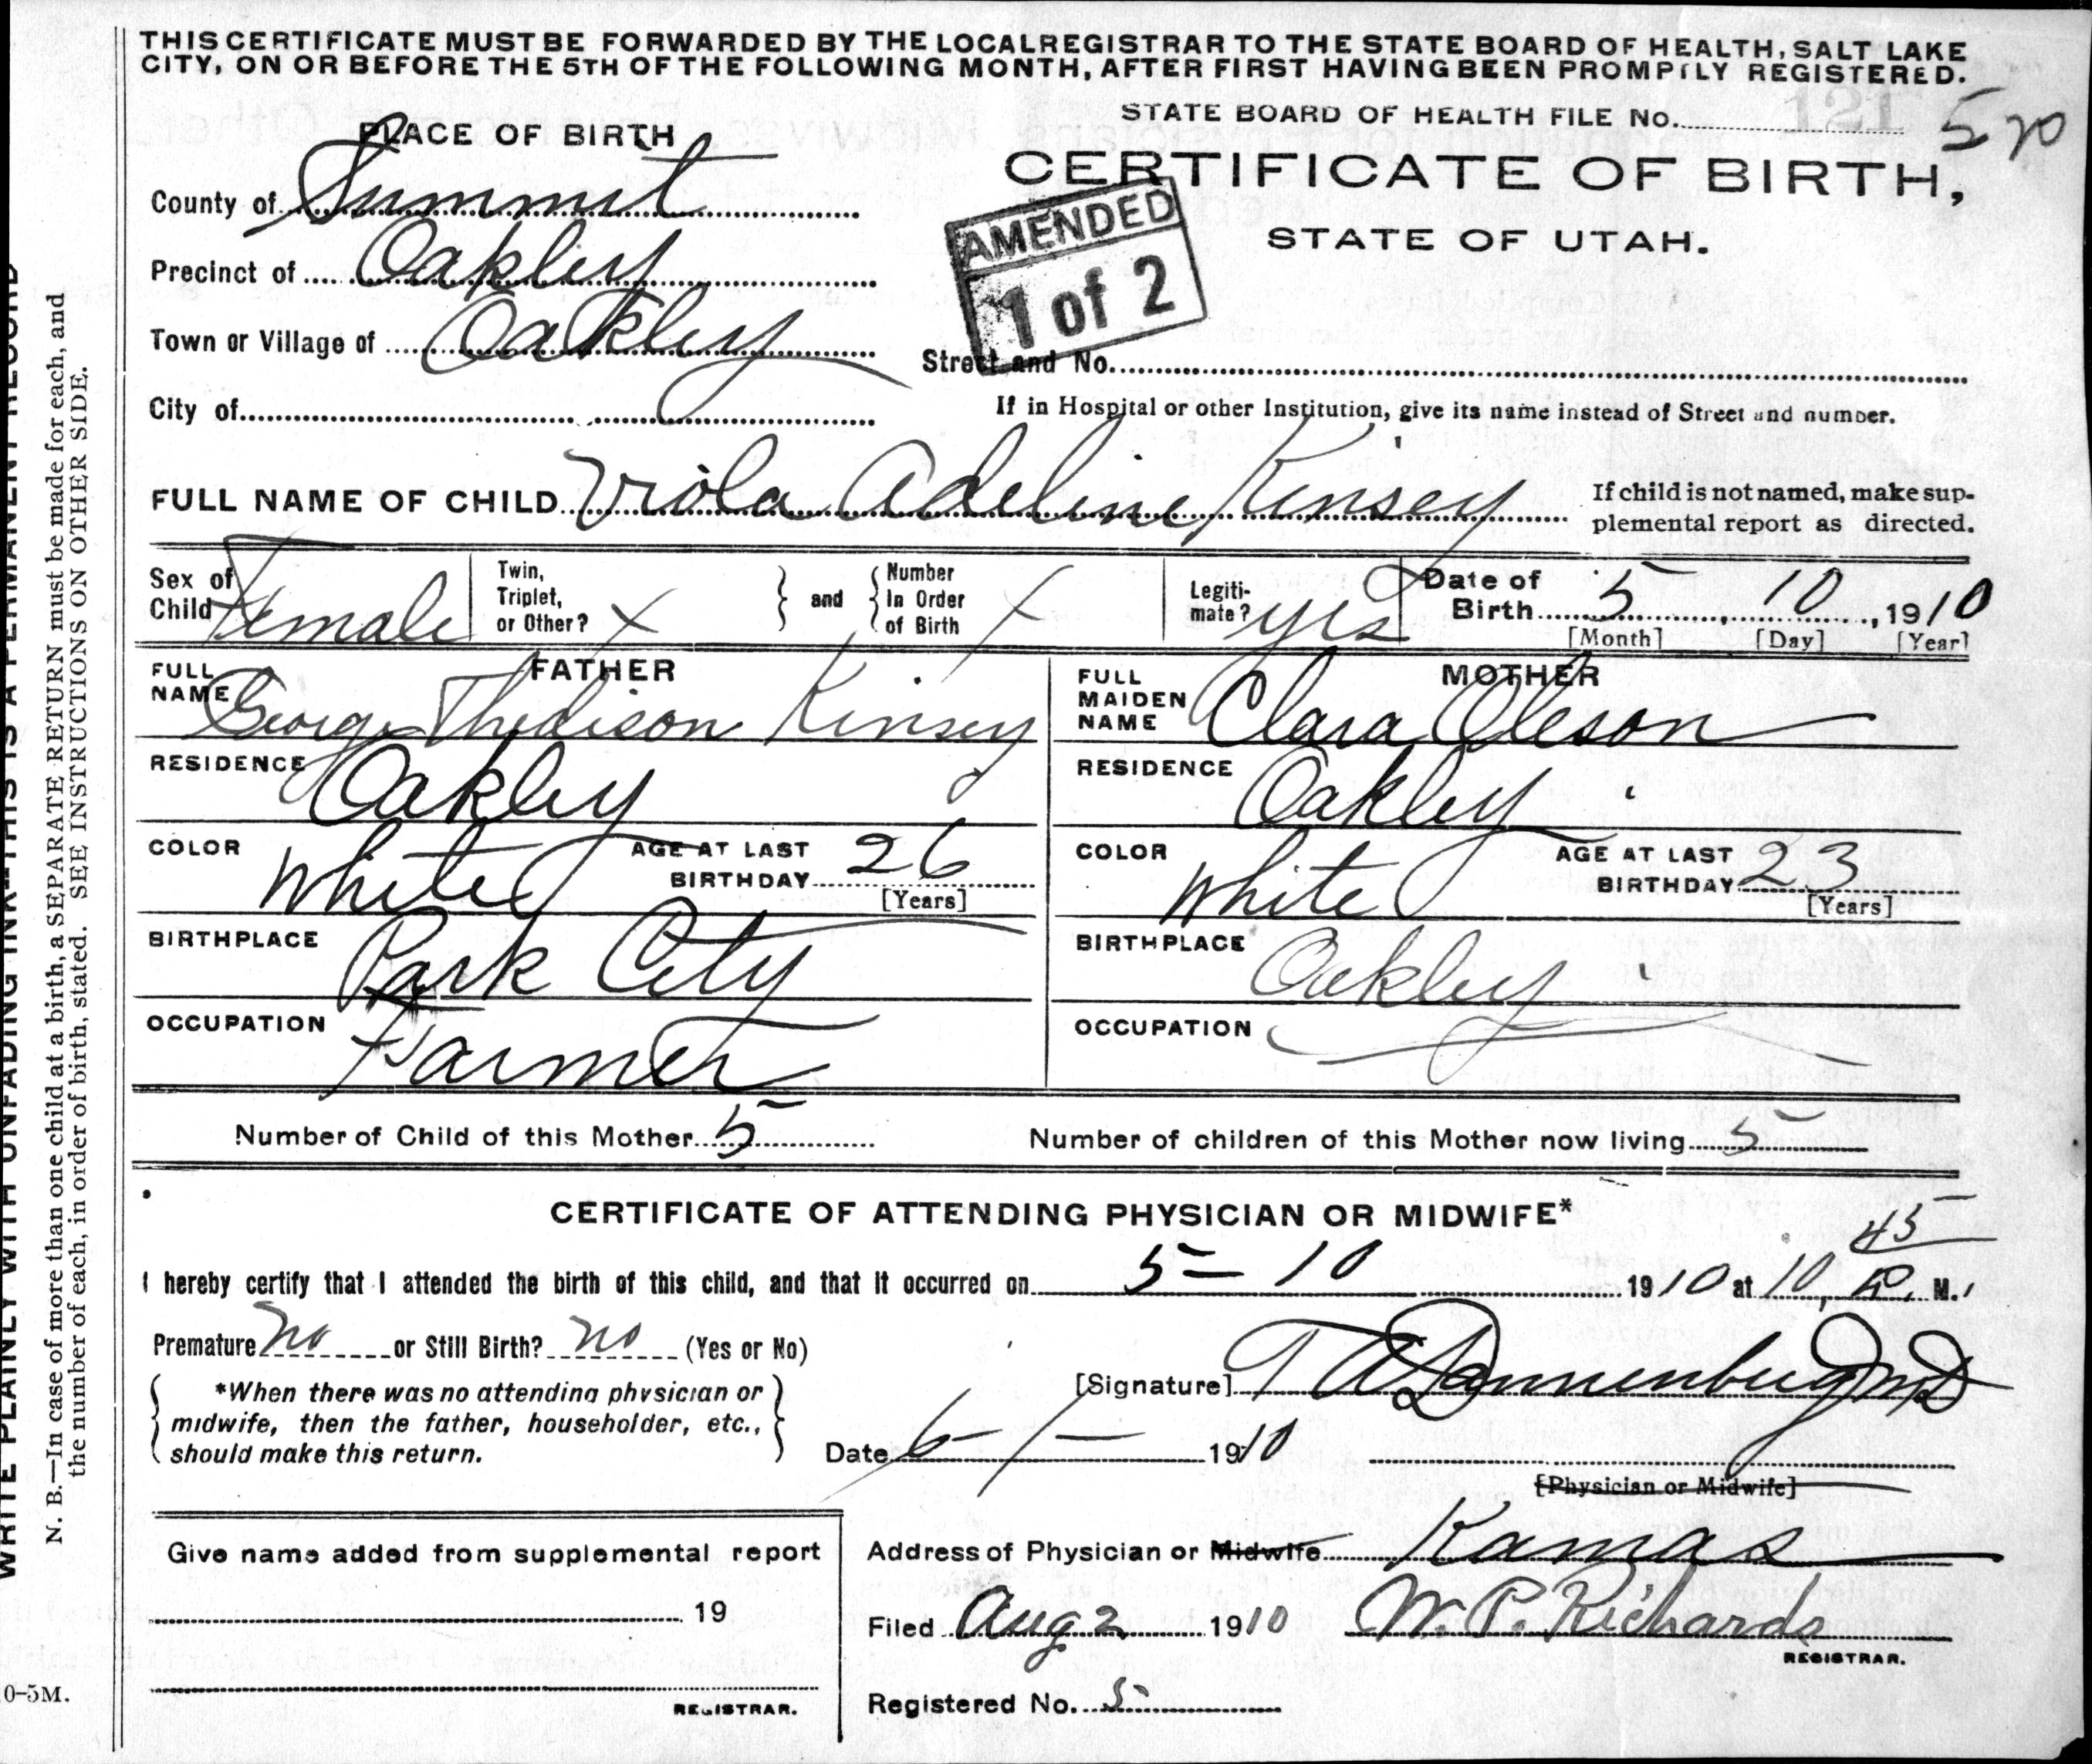 THIS CERTIFICATE MUST BE FORWARDED BY THE LOCAL REGISTRAR TO THE STATE BOARD OF HEALTH, SALT LAKE
CITY, ON OR BEFORE THE 5TH OF THE FOLLOWING MONTH, AFTER FIRST HAVING BEEN PROMPTLY REGISTERED.
STATE BOARD OF HEALTH FILE No. 121 570
PLACE OF BIRTH
CERTIFICATE OF BIRTH,
STATE OF UTAH.
County of Summit
Precinct of Oakley
Town or Village of Oakley
City of
AMENDED
1 of 2
Street and No.
If in Hospital or other Institution, give its name instead of Street and number.
FULL NAME OF CHILD Viola Adeline Kinsey
If child is not named, make sup-
plemental report as directed.
Sex of Child Female
Twin, Triplet, or Other? X
and
Number In Order of Birth X
Legiti-
mate? yes
Date of Birth 5 10, 1910
[Month] [Day] [Year]
FATHER
FULL NAME George Thedison Kinsey
RESIDENCE Oakley
COLOR White
AGE AT LAST BIRTHDAY 26
[Years]
BIRTHPLACE Park City
OCCUPATION Farmer
MOTHER
FULL MAIDEN NAME Clara Oleson
RESIDENCE Oakley
COLOR White
AGE AT LAST BIRTHDAY 23
[Years]
BIRTHPLACE Oakley
OCCUPATION
Number of Child of this Mother 5
Number of children of this Mother now living 5
CERTIFICATE OF ATTENDING PHYSICIAN OR MIDWIFE*
I hereby certify that I attended the birth of this child, and that it occurred on 5-10 1910 at 10,45 P. M.
Premature no or Still Birth? no (Yes or No)
*When there was no attending physician or
midwife, then the father, householder, etc.,
should make this return.
[Signature] T A Dannenberg MD
Date 6-1- 1910
[Physician or Midwife]
Give name added from supplemental report
19
REGISTRAR.
Address of Physician or Midwife Kamas
Filed Aug 2 1910 W. P. Richards
REGISTRAR.
Registered No. 5
WRITE PLAINLY WITH UNFADING INK—THIS IS A PERMANENT RECORD
N. B.—In case of more than one child at a birth, a SEPARATE RETURN must be made for each, and
the number of each, in order of birth, stated. SEE INSTRUCTIONS ON OTHER SIDE.
0-5M.